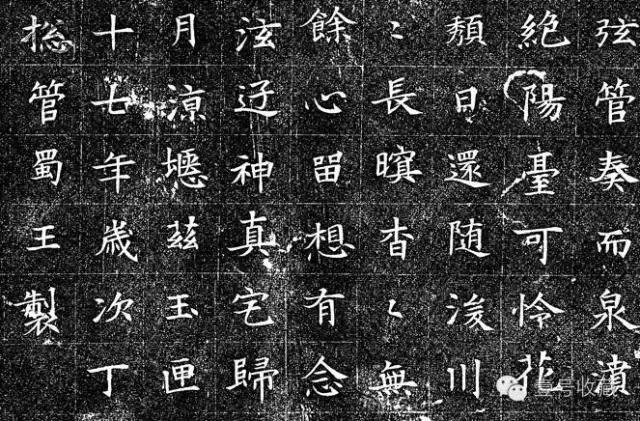 弦管奏而泉濆
絕陽臺可怜花
頹日還随浚川
〻長暝杳〻無
餘心留想有念
泫迁神真宅歸
月凉瘞茲玉匣
十七年歲次丁
揔管蜀王製
壹号收藏